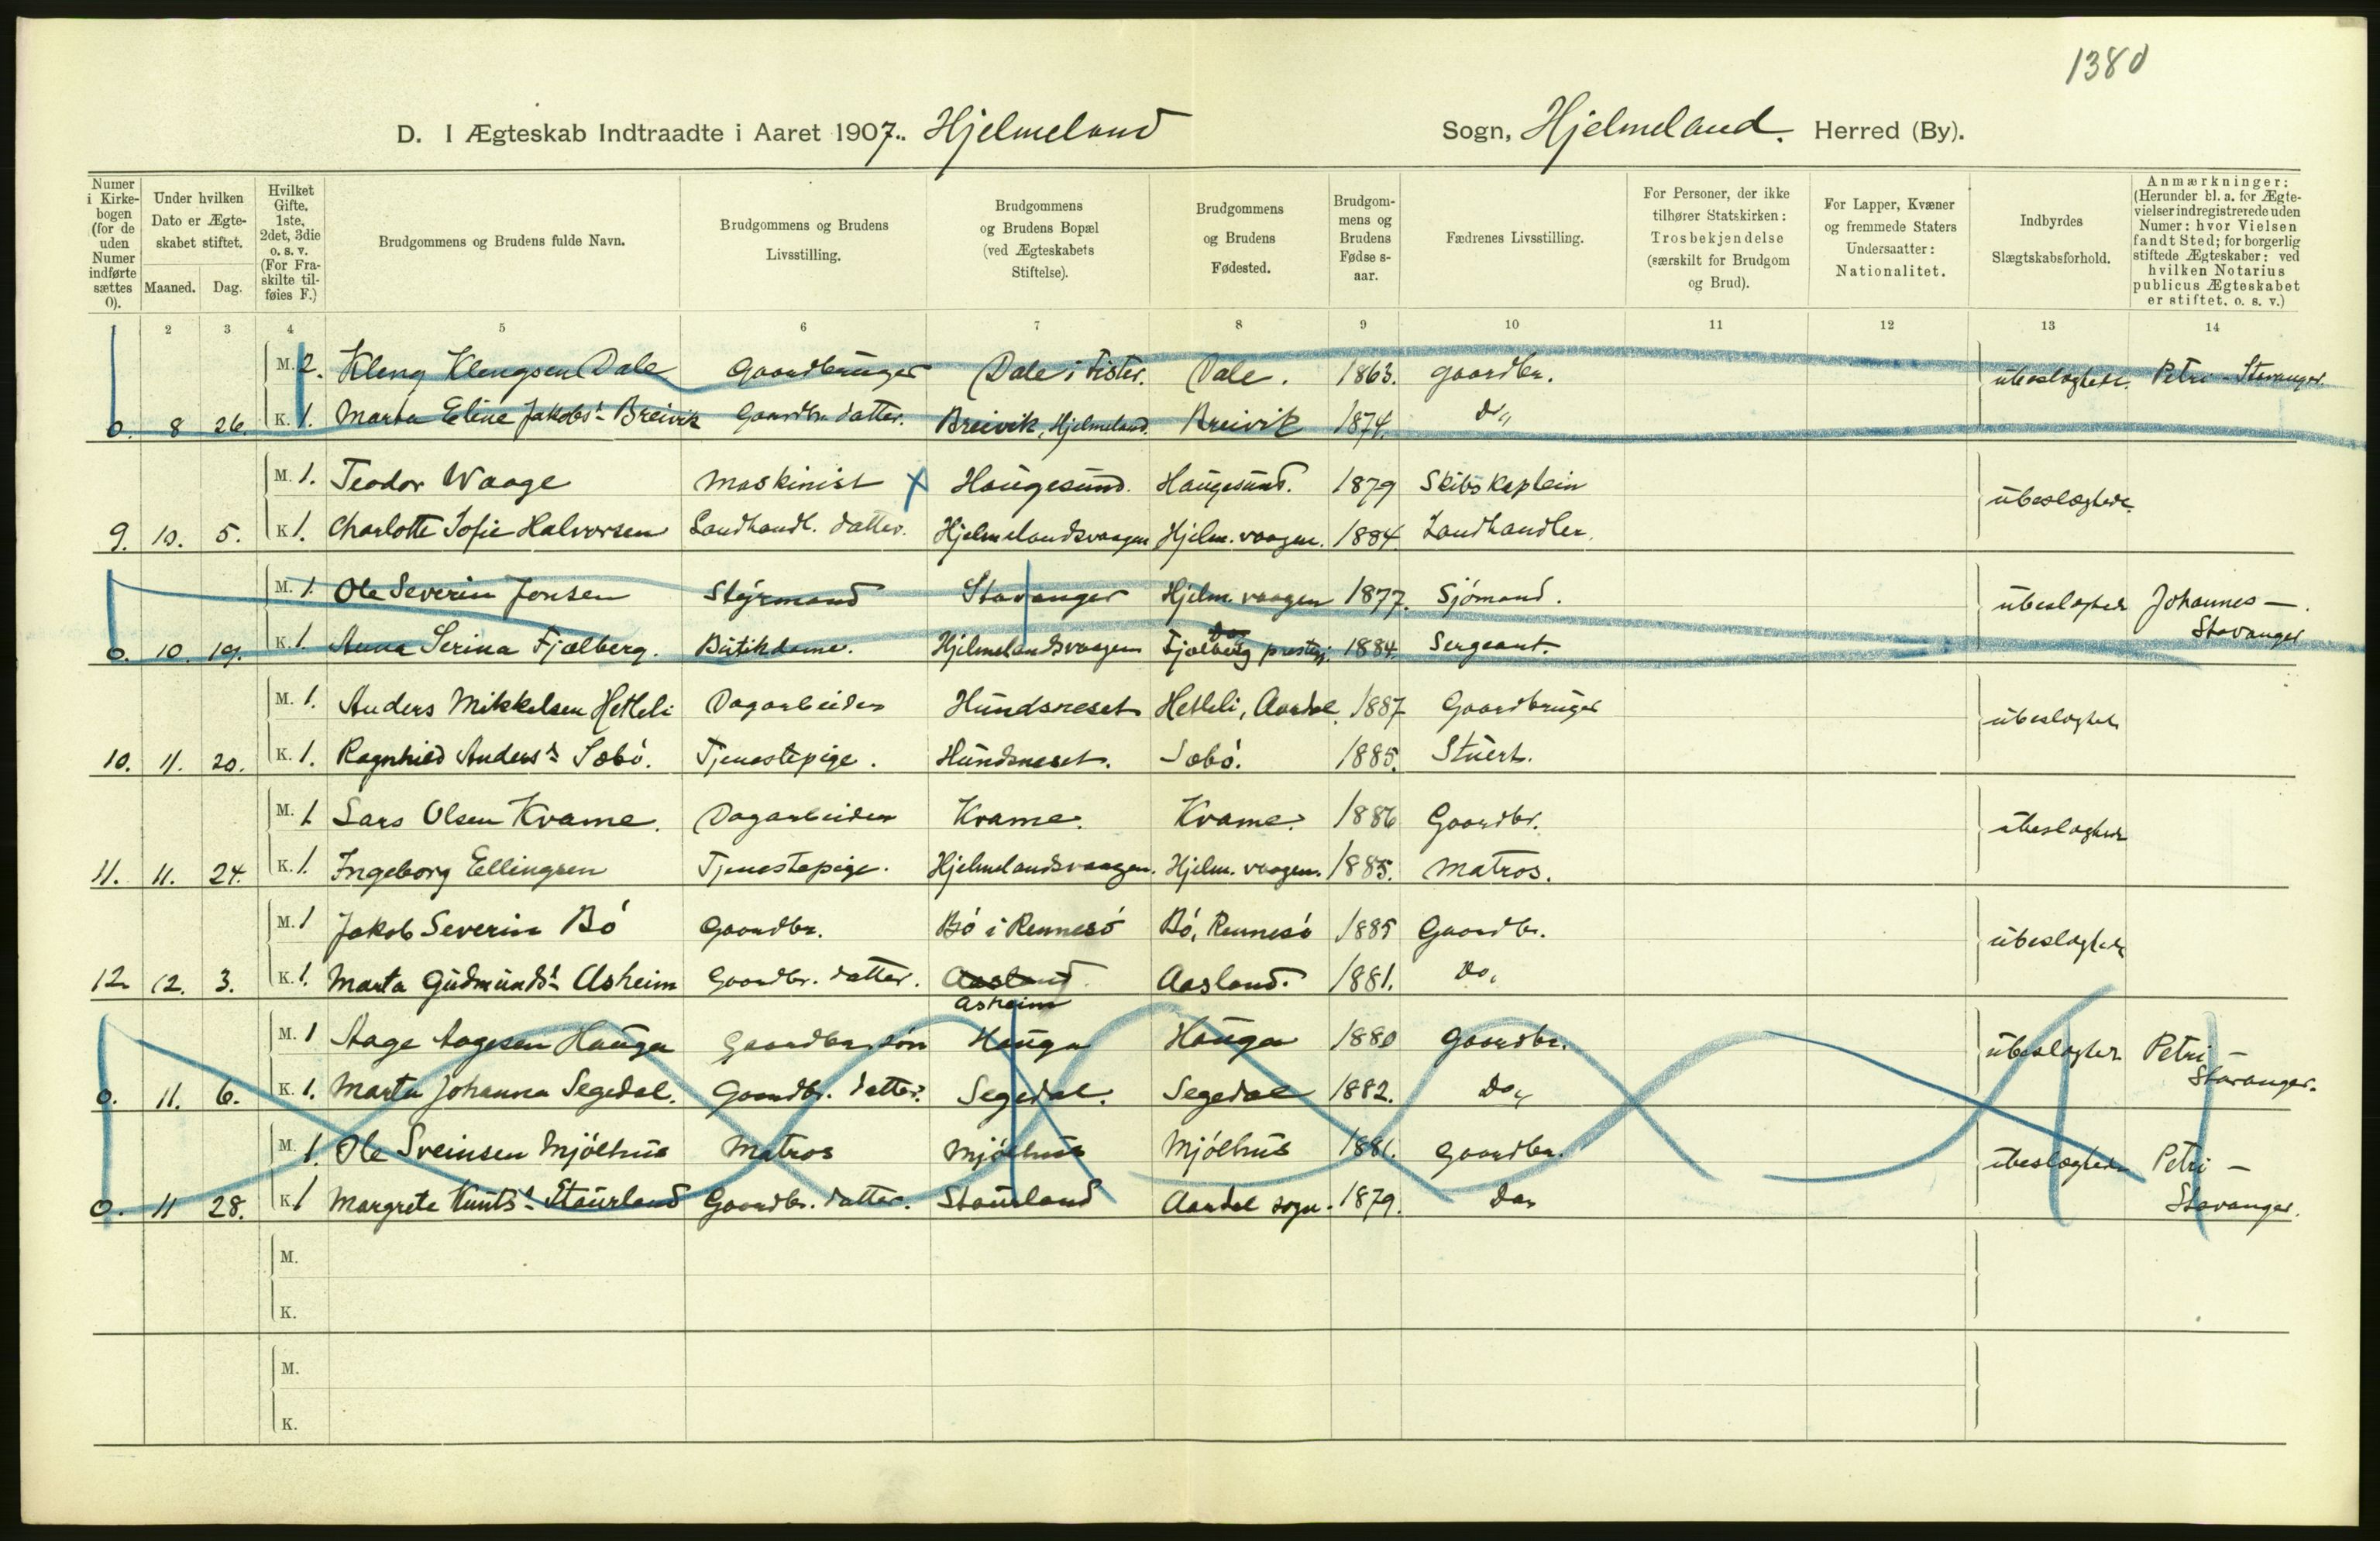 1380
D. I Ægteskab Indtraadte i Aaret 1907. Hjelmeland Sogn, Hjelmeland. Herred (By).
Numer i Kirkebogen (for de uden Numer indførte sættes 0).
Under hvilken Dato er Ægteskabet stiftet.
Maaned. Dag.
Hvilket Gifte, 1ste, 2det, 3die o. s. v. (For Fraskilte tilføies F.)
Brudgommens og Brudens fulde Navn.
Brudgommens og Brudens Livsstilling.
Brudgommens og Brudens Bopæl (ved Ægteskabets Stiftelse).
Brudgommens og Brudens Fødested.
Brudgommens og Brudens Fødselsaar.
Fædrenes Livsstilling.
For Personer, der ikke tilhører Statskirken: Trosbekjendelse (særskilt for Brudgom og Brud).
For Lapper, Kvæner og fremmede Staters Undersaatter: Nationalitet.
Indbyrdes Slægtskabsforhold.
Anmærkninger: (Herunder bl. a. for Ægtevielser indregistrerede uden Numer: hvor Vielsen fandt Sted; for borgerlig stiftede Ægteskaber: ved hvilken Notarius publicus Ægteskabet er stiftet, o. s. v.)
2 3 4 5 6 7 8 9 10 11 12 13 14
M. 2. Kleng Klengsen Dale Gaardbruger Dale i Fister. Dale. 1863. gaardbr. ubeslægtede. Petri - Stavanger.
0. 8 26. K. 1. Marta Eline Jakobsd. Breivik Gaardbr. datter. Breivik, Hjelmeland. Breivik 1874. Do
M. 1. Teodor Waage Maskinist X Haugesund. Haugesund. 1879 Skibskaptein ubeslægtede.
9. 10. 5. K 1. Charlotte Sofie Halvorsen Landhandl. datter. Hjelmelandsvaagen Hjelm. vaagen. 1884. Landhandler.
M. 1. Ole Severin Jonsen Styrmand Stavanger Hjelm. vaagen 1877. Sjömand. ubeslægtede Johannes -
0. 10. 19. K. 1. Anna Serina Fjælberg. Butikdame. Hjelmelandsvaagen Fjælberg prestegj. 1884. Sergeant. Stavanger
M. 1. Anders Mikkelsen Hetleli Dagarbeider Hundsneset Hetleli, Aardal 1887 Gaardbruger ubeslægtede
10. 11. 20. K. 1. Ragnhild Andersd. Sæbö. Tjenestepige. Hundsneset. Sæbö. 1885. Stuert.
M. 1 Lars Olsen Kvame. Dagarbeider Kvame. Kvame. 1886 Gaardbr. ubeslægtede
11. 11. 24. K. 1. Ingeborg Ellingsen Tjenestepige. Hjelmelandsvaagen. Hjelm. vaagen. 1885. Matros.
M. 1 Jakob Severin Bö Gaardbr. Bö i Rennesö Bö, Rennesö 1885 Gaardbr. ubeslægtede
12. 12. 3. K. 1. Marta Gudmundsd. Asheim Gaardbr. datter. Aasland. Aasland. 1881. Do.
Asheim
M. 1 Aage Aagesen Hauga Gaardbr. søn Hauga Hauga 1880 Gaardbr. ubeslægtede Petri -
0. 11. 6. K. 1. Marta Johanna Segedal. Gaardbr. datter. Segedal. Segedal 1882. Do Stavanger.
M. 1. Ole Sveinsen Mjölhus Matros Mjölhus Mjölhus 1881. Gaardbr. ubeslægtede Petri -
0. 11 28. K 1 Margrete Knutsd. Staurland Gaardbr. datter. Staurland Aardal sogn. 1879. Do Stavanger.
M.
K.
M.
K.